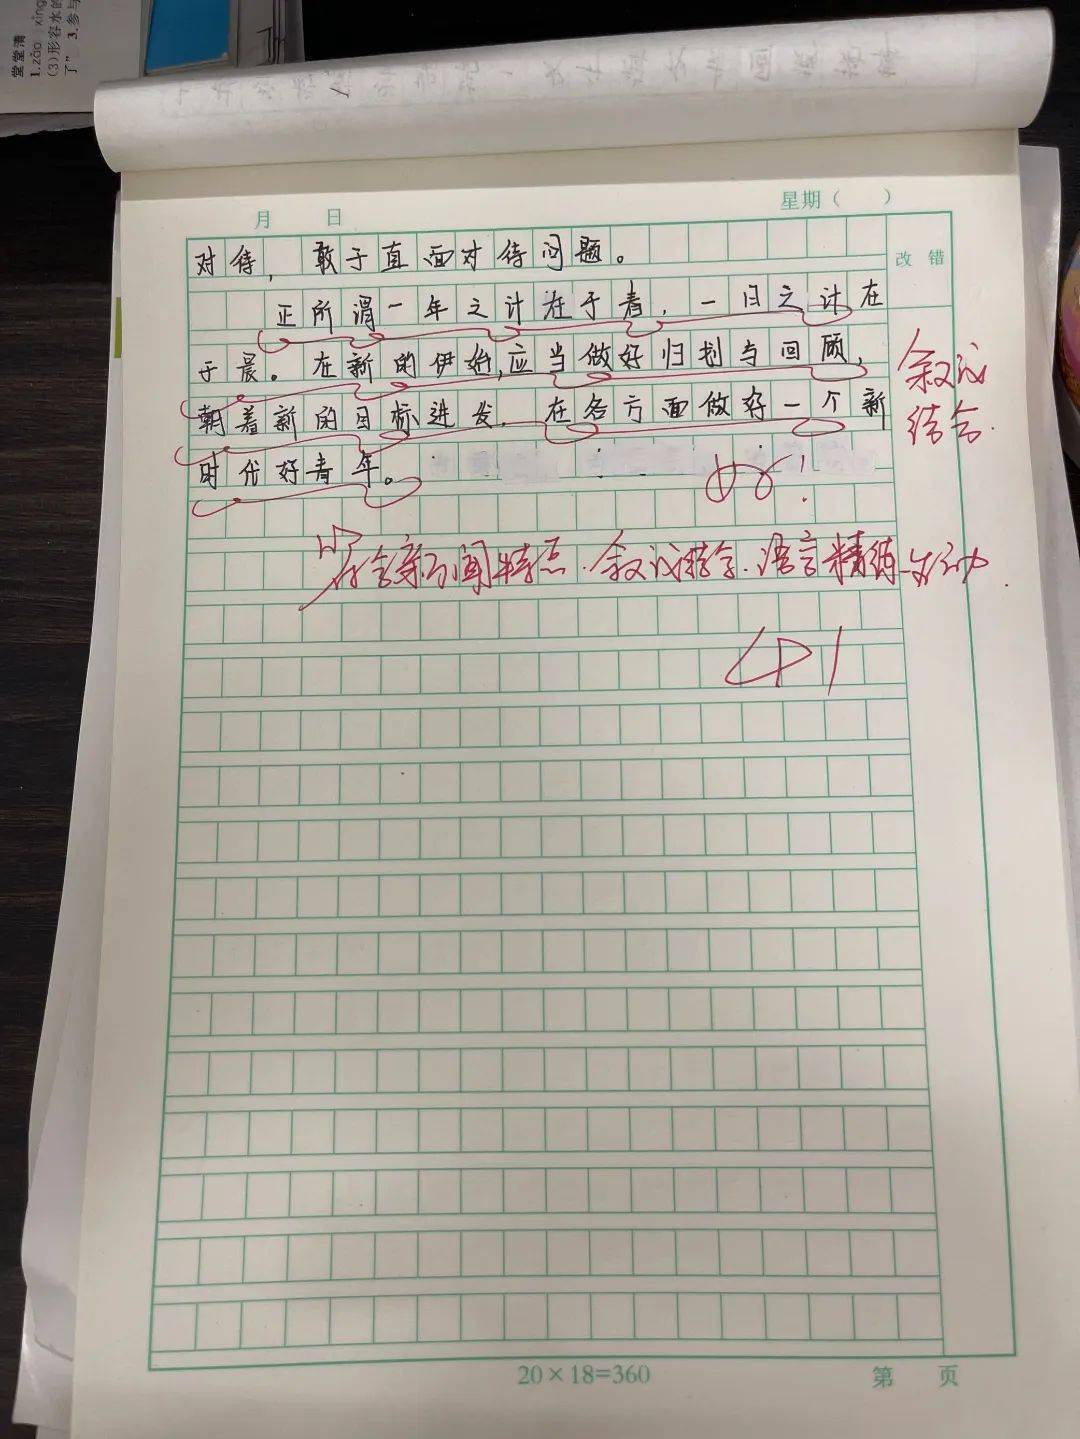 堂堂清
1.zǎo xíng
(3)形容水的
了” 3.参与
月 日
星期（ ）
改错
对待，敢于直面对待问题。
正所谓一年之计在于春，一日之计在
于晨。在新的伊始，应当做好归划与回顾，
朝着新的目标进发，在各方面做好一个新
时代好青年。
叙议
结合.
好！
符合新闻特点.叙议结合.语言精练生动.
41
20×18=360
第 页